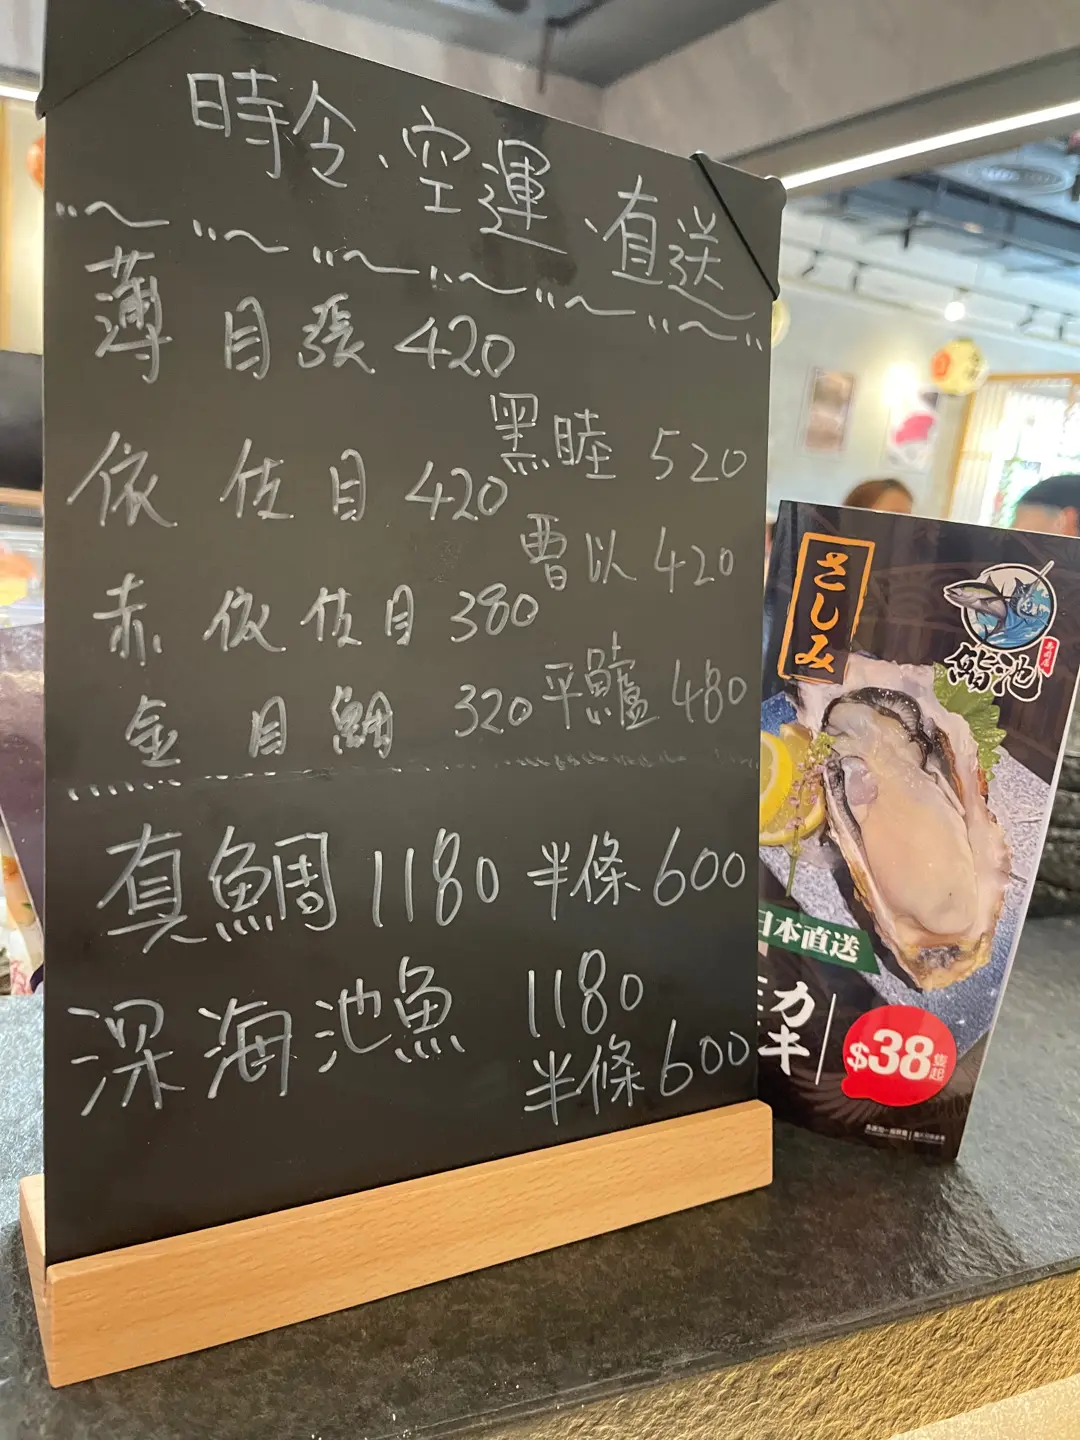 時令、空運、直送
薄目張 420
依佐目 420
赤依佐目 380
金目鯛 320
黑睦 520
曹以 420
平鱸 480
真鯛 1180 半條 600
深海池魚 1180
半條 600
さしみ
鮨池
日本直送
$38隻起